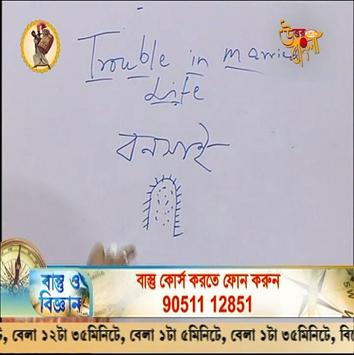 উত্তর বাংলা
Trouble in married
Life
বনসাই
বাস্তু ও
বিজ্ঞান
বাস্তু কোর্স করতে ফোন করুন
90511 12851
বেলা ১২টা ৩৫মিনিটে, বেলা ১টা ৫মিনিটে, বেলা ১টা ৩৫মিনিটে,